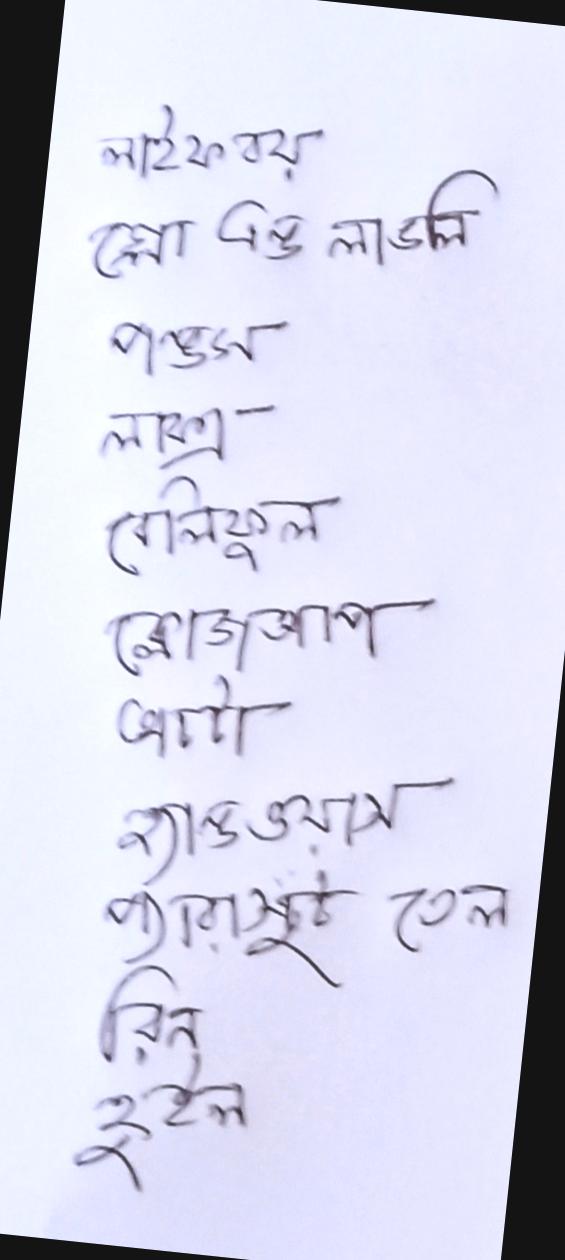 লাইফবয়
গ্লো এন্ড লাভলি
পন্ডস
লাক্স
বেলিফুল
ক্লোজআপ
প্যারাসুট তেল
হ্যান্ডওয়াস
রিন
হুইল